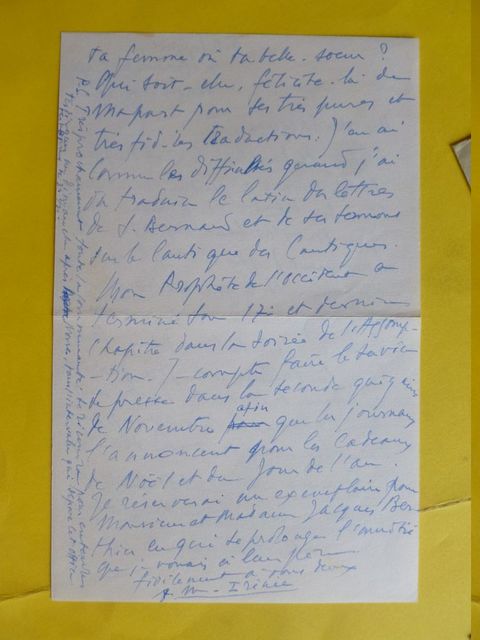 ta femme ou ta belle-soeur ?
Qui soit-elle, félicite-la de
ma part pour ses très pures et
très fidèles traductions. J'en ai
connu les difficultés quand j'ai
dû traduire le latin des lettres
de S. Bernard et de ses sermons
sur le Cantique des Cantiques.
Mon Prophète de l'occident a
terminé son 17e et dernier
chapitre dans la soirée de l'Assomp-
tion. Je compte faire le service
de presse dans la seconde quinzaine
de Novembre afin que les journaux
l'annoncent pour les cadeaux
de Noël et du Jour de l'an.
Je réserverai un exemplaire pour
Monsieur et Madame Jacques Ber-
thieu en qui se prolonge l'amitié
que je vouais à leur père
fidèlement à vous deux
f. M-Irénée
P.S. Très prochainement toute la communauté se réunira pour